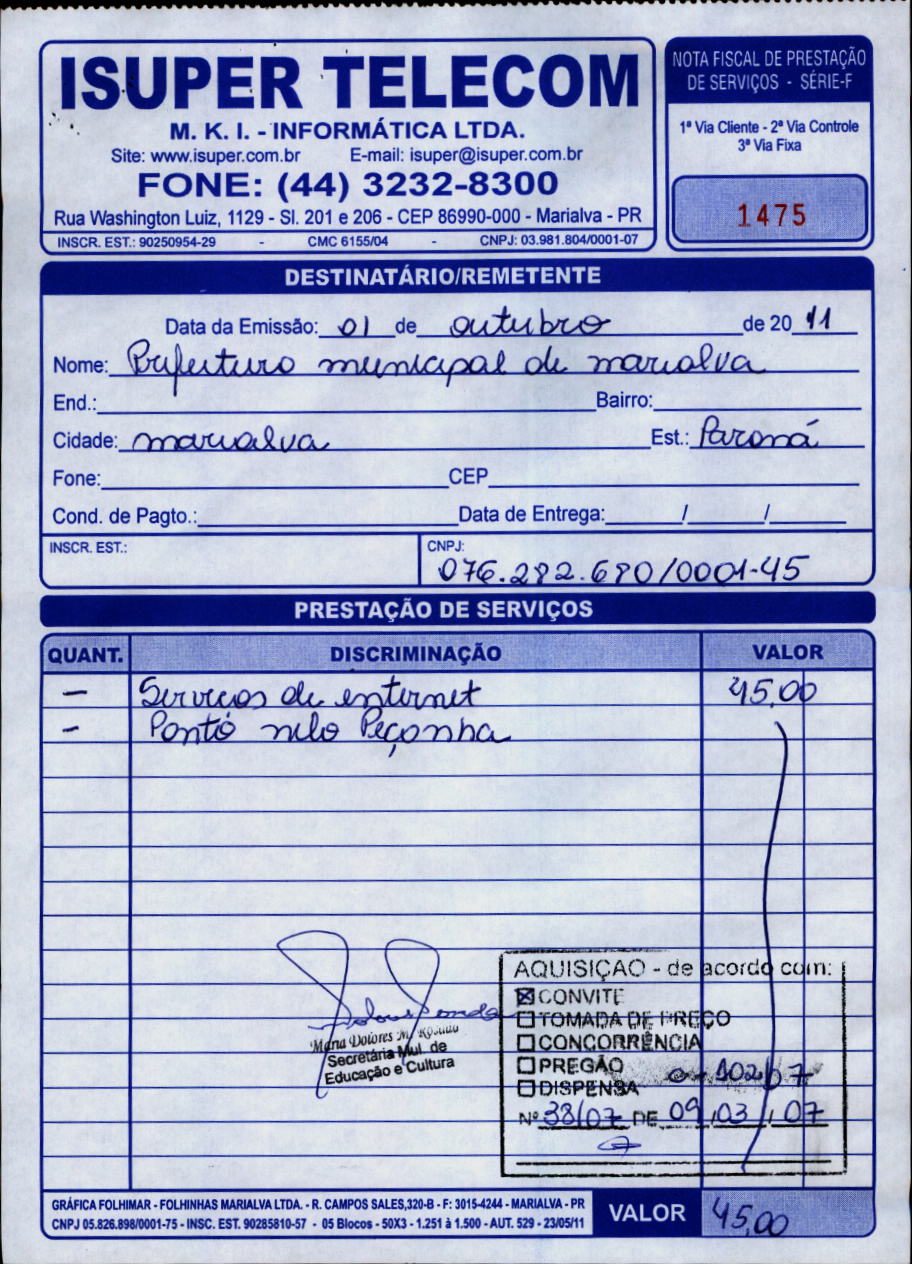 ISUPER TELECOM
M. K. I. - INFORMÁTICA LTDA.
Site: www.isuper.com.br E-mail: isuper@isuper.com.br
FONE: (44) 3232-8300
Rua Washington Luiz, 1129 - Sl. 201 e 206 - CEP 86990-000 - Marialva - PR
INSCR. EST.: 90250954-29 - CMC 6155/04 - CNPJ: 03.981.804/0001-07
NOTA FISCAL DE PRESTAÇÃO
DE SERVIÇOS - SÉRIE-F
1ª Via Cliente - 2ª Via Controle
3ª Via Fixa
1475
DESTINATÁRIO/REMETENTE
Data da Emissão: 01 de outubro de 20 11
Nome: Prefeitura municipal de marialva
End.: Bairro:
Cidade: marialva Est.: Paraná
Fone: CEP
Cond. de Pagto.: Data de Entrega: / /
INSCR. EST.: CNPJ:
076.282.680/0001-45
PRESTAÇÃO DE SERVIÇOS
QUANT. DISCRIMINAÇÃO VALOR
- Serviços de internet 45,00
- Ponto nilo Peçanha
Maria Dolores M.
Secretária Mul. de
Educação e Cultura
AQUISIÇAO - de acordo com:
☒ CONVITE
☐ TOMADA DE PREÇO
☐ CONCORRÊNCIA
☐ PREGÃO
☐ DISPENSA
Nº 38/07 DE 09/03/07
GRÁFICA FOLHIMAR - FOLHINHAS MARIALVA LTDA. - R. CAMPOS SALES,320-B - F: 3015-4244 - MARIALVA - PR
CNPJ 05.826.898/0001-75 - INSC. EST. 90285810-57 - 05 Blocos - 50X3 - 1.251 à 1.500 - AUT. 529 - 23/05/11
VALOR 45,00